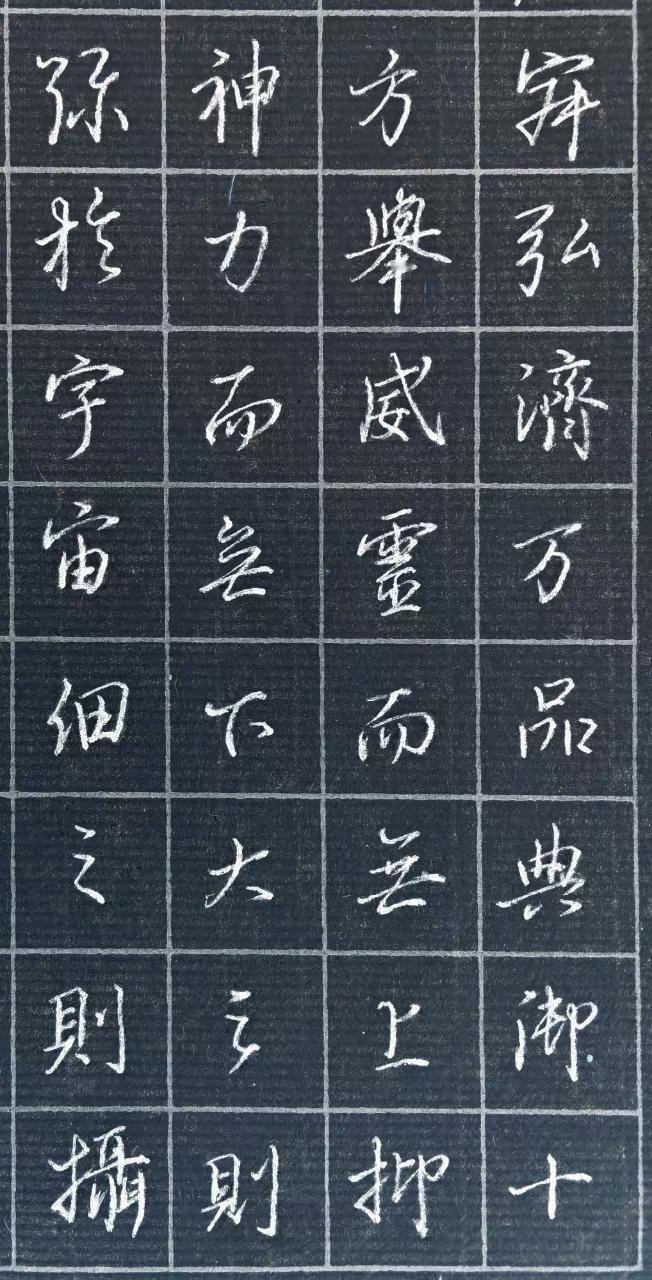 寂弘濟万品典御十
方舉威靈而無上抑
神力而無下大之則
弥於宇宙細之則攝